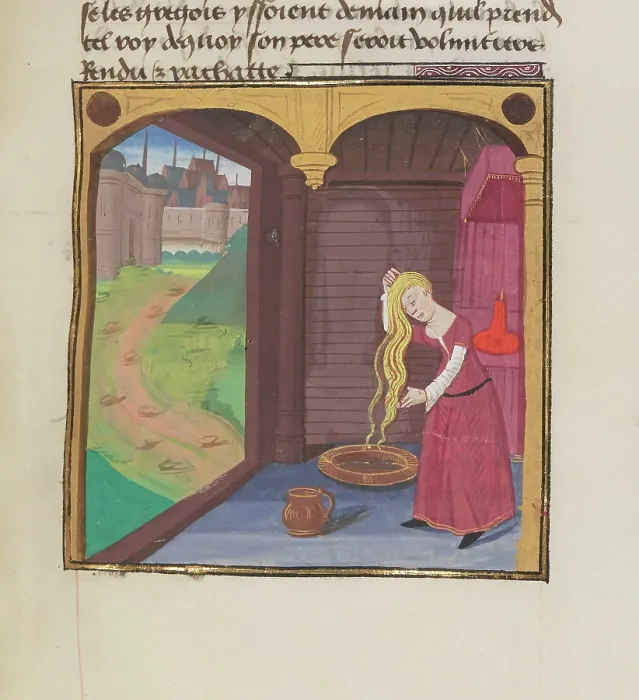 se les gregois yssoient demain quil prend
tel roy dequoy son pere seroit voluntiers
Rendu & rachatte